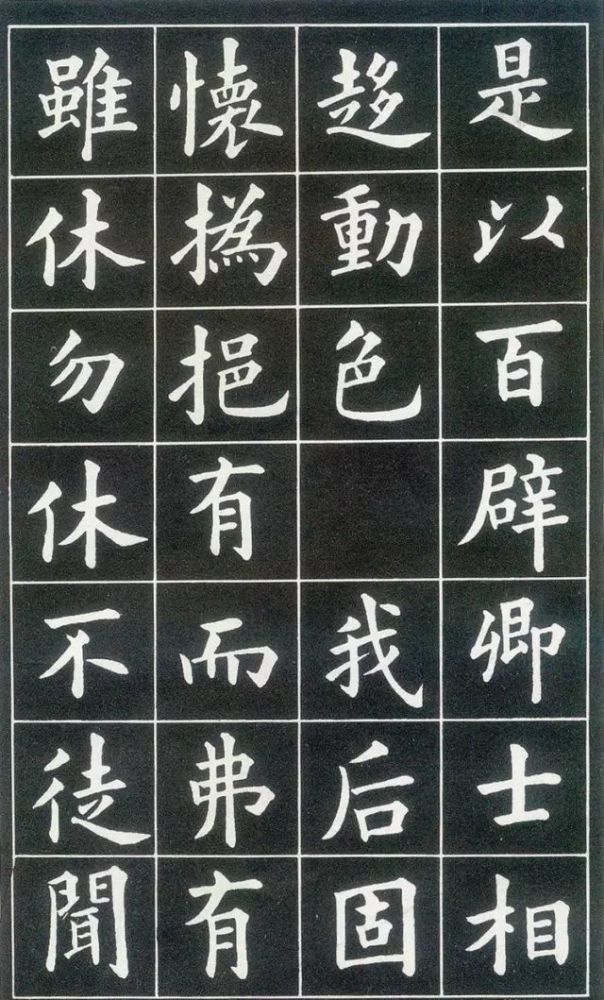 是以百辟卿士相
趍動色 我后固
懐撝挹有而弗有
雖休勿休不徒聞